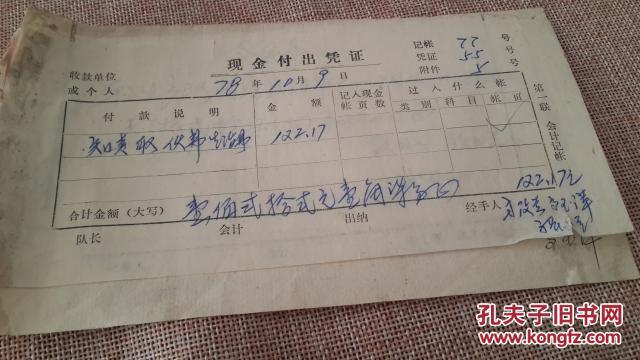 现金付出凭证
收款单位
或个人
78年10月9日
记帐 77 号
凭证 55 号
附件 5 号
付款说明 金额 记入现金帐页数 过入什么帐
类别 科目 帐页
122.17
第一联 会计记帐
合计金额（大写） 壹佰弍拾弍元壹角柒分
122.17元
队长 会计 出纳 经手人
孔夫子旧书网
www.kongfz.com